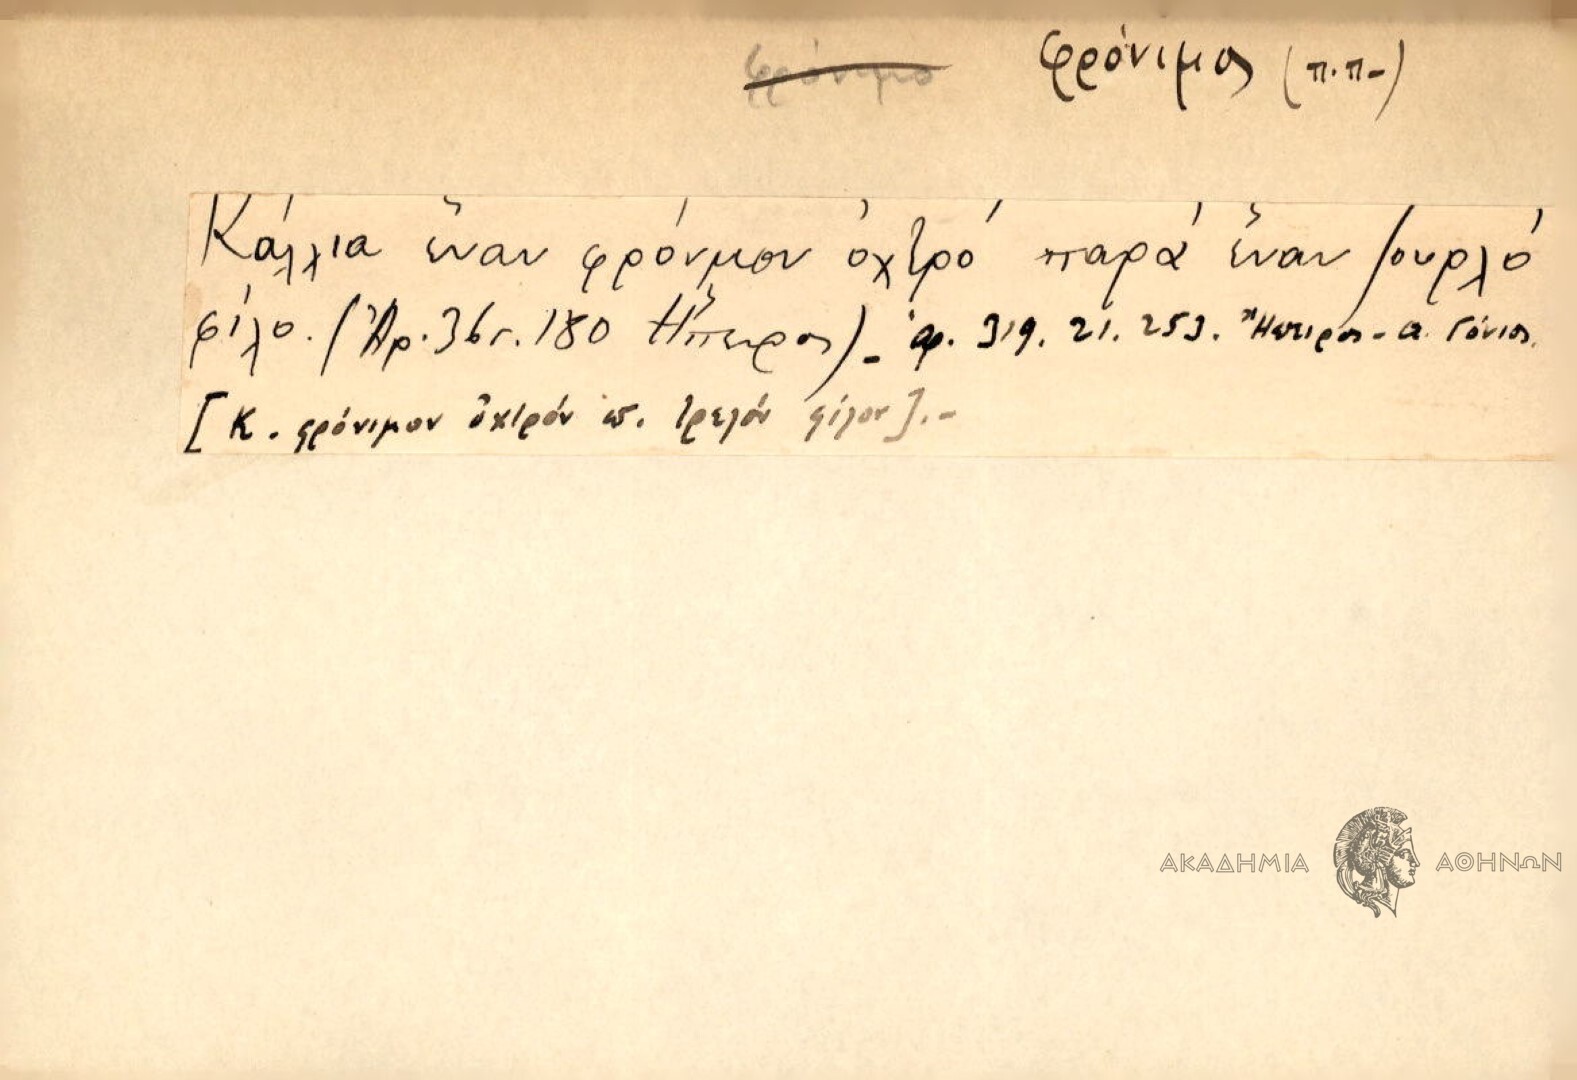 φρόνιμο φρόνιμος (π.π-)
Κάλλια ἕναν φρόνμον ὀχτρό παρά ἕναν ζουρλό
φίλο. (Ἀρ. 36 σ. 180 Ἤπειρος) - ἀρ. 319. 21. 253. Ἤπειρος - α. Γόνιος.
[Κ. φρόνιμον ὀχτρόν π. τρελόν φίλον].-
ΑΚΑΔΗΜΙΑ ΑΘΗΝΩΝ